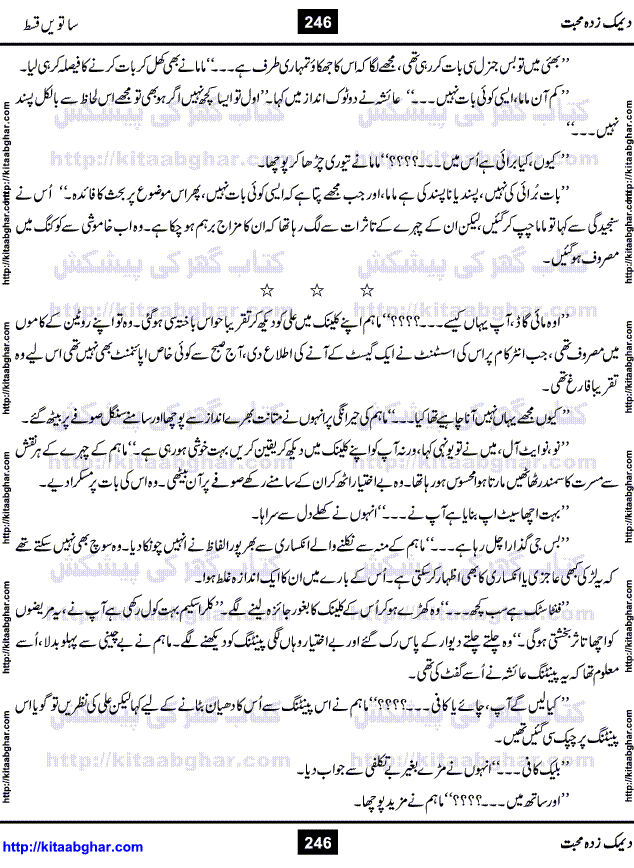 دیمک زدہ محبت 246 ساتویں قسط
’’بھئی میں تو بس جنرل سی بات کر رہی تھی، مجھے لگا کہ اس کا جھکاؤ تمہاری طرف ہے۔۔۔‘‘ ماما نے بھی کھل کر بات کرنے کا فیصلہ کر ہی لیا۔
’’کم آن ماما، ایسی کوئی بات نہیں۔۔۔‘‘ عائشہ نے دو ٹوک انداز میں کہا۔ ’’اول تو ایسا کچھ نہیں اگر ہو بھی تو مجھے اس لحاظ سے بالکل پسند
نہیں۔۔۔‘‘
’’کیوں، کیا برائی ہے اُس میں۔۔۔؟؟؟؟‘‘ ماما نے تیوری چڑھا کر پوچھا۔
’’بات بُرائی کی نہیں، پسند یا ناپسند کی ہے ماما، اور جب مجھے پتا ہے کہ ایسی کوئی بات نہیں، پھر اس موضوع پر بحث کا فائدہ۔‘‘ اُس نے
سنجیدگی سے کہا تو ماما چپ کر گئیں، لیکن ان کے چہرے کے تاثرات سے لگ رہا تھا کہ ان کا مزاج برہم ہو چکا ہے۔ وہ اب خاموشی سے کوکنگ میں
مصروف ہو گئیں۔
☆ ☆ ☆
’’اوہ مائی گاڈ، آپ یہاں کیسے۔۔۔؟؟؟؟‘‘ ماہم اپنے کلینک میں علی کو دیکھ کر تقریبا حواس باختہ سی ہو گئی۔ وہ تو اپنے روٹین کے کاموں
میں مصروف تھی، جب انٹر کام پر اس کی اسسٹنٹ نے ایک گیسٹ کے آنے کی اطلاع دی، آج صبح سے کوئی خاص اپائنمنٹ بھی نہیں تھی اس لیے وہ
تقریبا فارغ تھی۔
’’کیوں مجھے یہاں نہیں آنا چاہیے تھا کیا۔۔۔‘‘ ماہم کی حیرانگی پر انہوں نے متانت بھرے انداز سے پوچھا اور سامنے سنگل صوفے پر بیٹھ گئے۔
’’نو، نو ایٹ آل، میں نے تو یونہی کہا، ورنہ آپ کو اپنے کلینک میں دیکھ کر یقین کریں بہت خوشی ہو رہی ہے۔‘‘ ماہم کے چہرے کے ہر نقش
سے مسرت کا سمندر ٹھاٹھیں مارتا ہوا محسوس ہو رہا تھا۔ وہ بے اختیار اٹھ کر ان کے سامنے رکھے صوفے پر آن بیٹھی۔ وہ اس کی بات پر مسکرا دیے۔
’’بہت اچھا سیٹ اپ بنایا ہے آپ نے۔۔۔‘‘ انہوں نے کھلے دل سے سراہا۔
’’بس جی گذارا چل رہا ہے۔۔۔‘‘ ماہم کے منہ سے نکلنے والے انکساری سے بھرپور الفاظ نے اُنہیں چونکا دیا۔ وہ سوچ بھی نہیں سکتے تھے
کہ یہ لڑکی کبھی عاجزی یا انکساری کا بھی اظہار کر سکتی ہے۔ اُس کے بارے میں ان کا ایک اندازہ غلط ہوا۔
’’فنٹاسٹک ہے سب کچھ۔۔۔‘‘ وہ کھڑے ہو کر اُس کے کلینک کا بغور جائزہ لینے لگے۔ ’’کلر اسکیم بہت کول رکھی ہے آپ نے، یہ مریضوں
کو اچھا تاثر بخشتی ہو گی۔‘‘ وہ چلتے چلتے دیوار کے پاس رک گئے اور بے اختیار وہاں لگی پینٹنگ کو دیکھنے لگے۔ ماہم نے بے چینی سے پہلو بدلا، اُسے
معلوم تھا کہ یہ پینٹنگ عائشہ نے اُسے گفٹ کی تھی۔
’’کیا لیں گے آپ، چائے یا کافی۔۔۔؟؟؟؟‘‘ ماہم نے اس پینٹنگ سے اُس کا دھیان ہٹانے کے لیے کہا لیکن علی کی نظریں تو گویا اس
پینٹنگ پر چپک سی گئیں تھیں۔
’’بلیک کافی۔۔۔‘‘ انہوں نے مڑے بغیر بے تکلفی سے جواب دیا۔
’’اور ساتھ میں۔۔۔؟؟؟؟‘‘ ماہم نے مزید پوچھا۔
دیمک زدہ محبت 246 http://kitaabghar.com
http://kitaabghar.com
کتاب گھر کی پیشکش